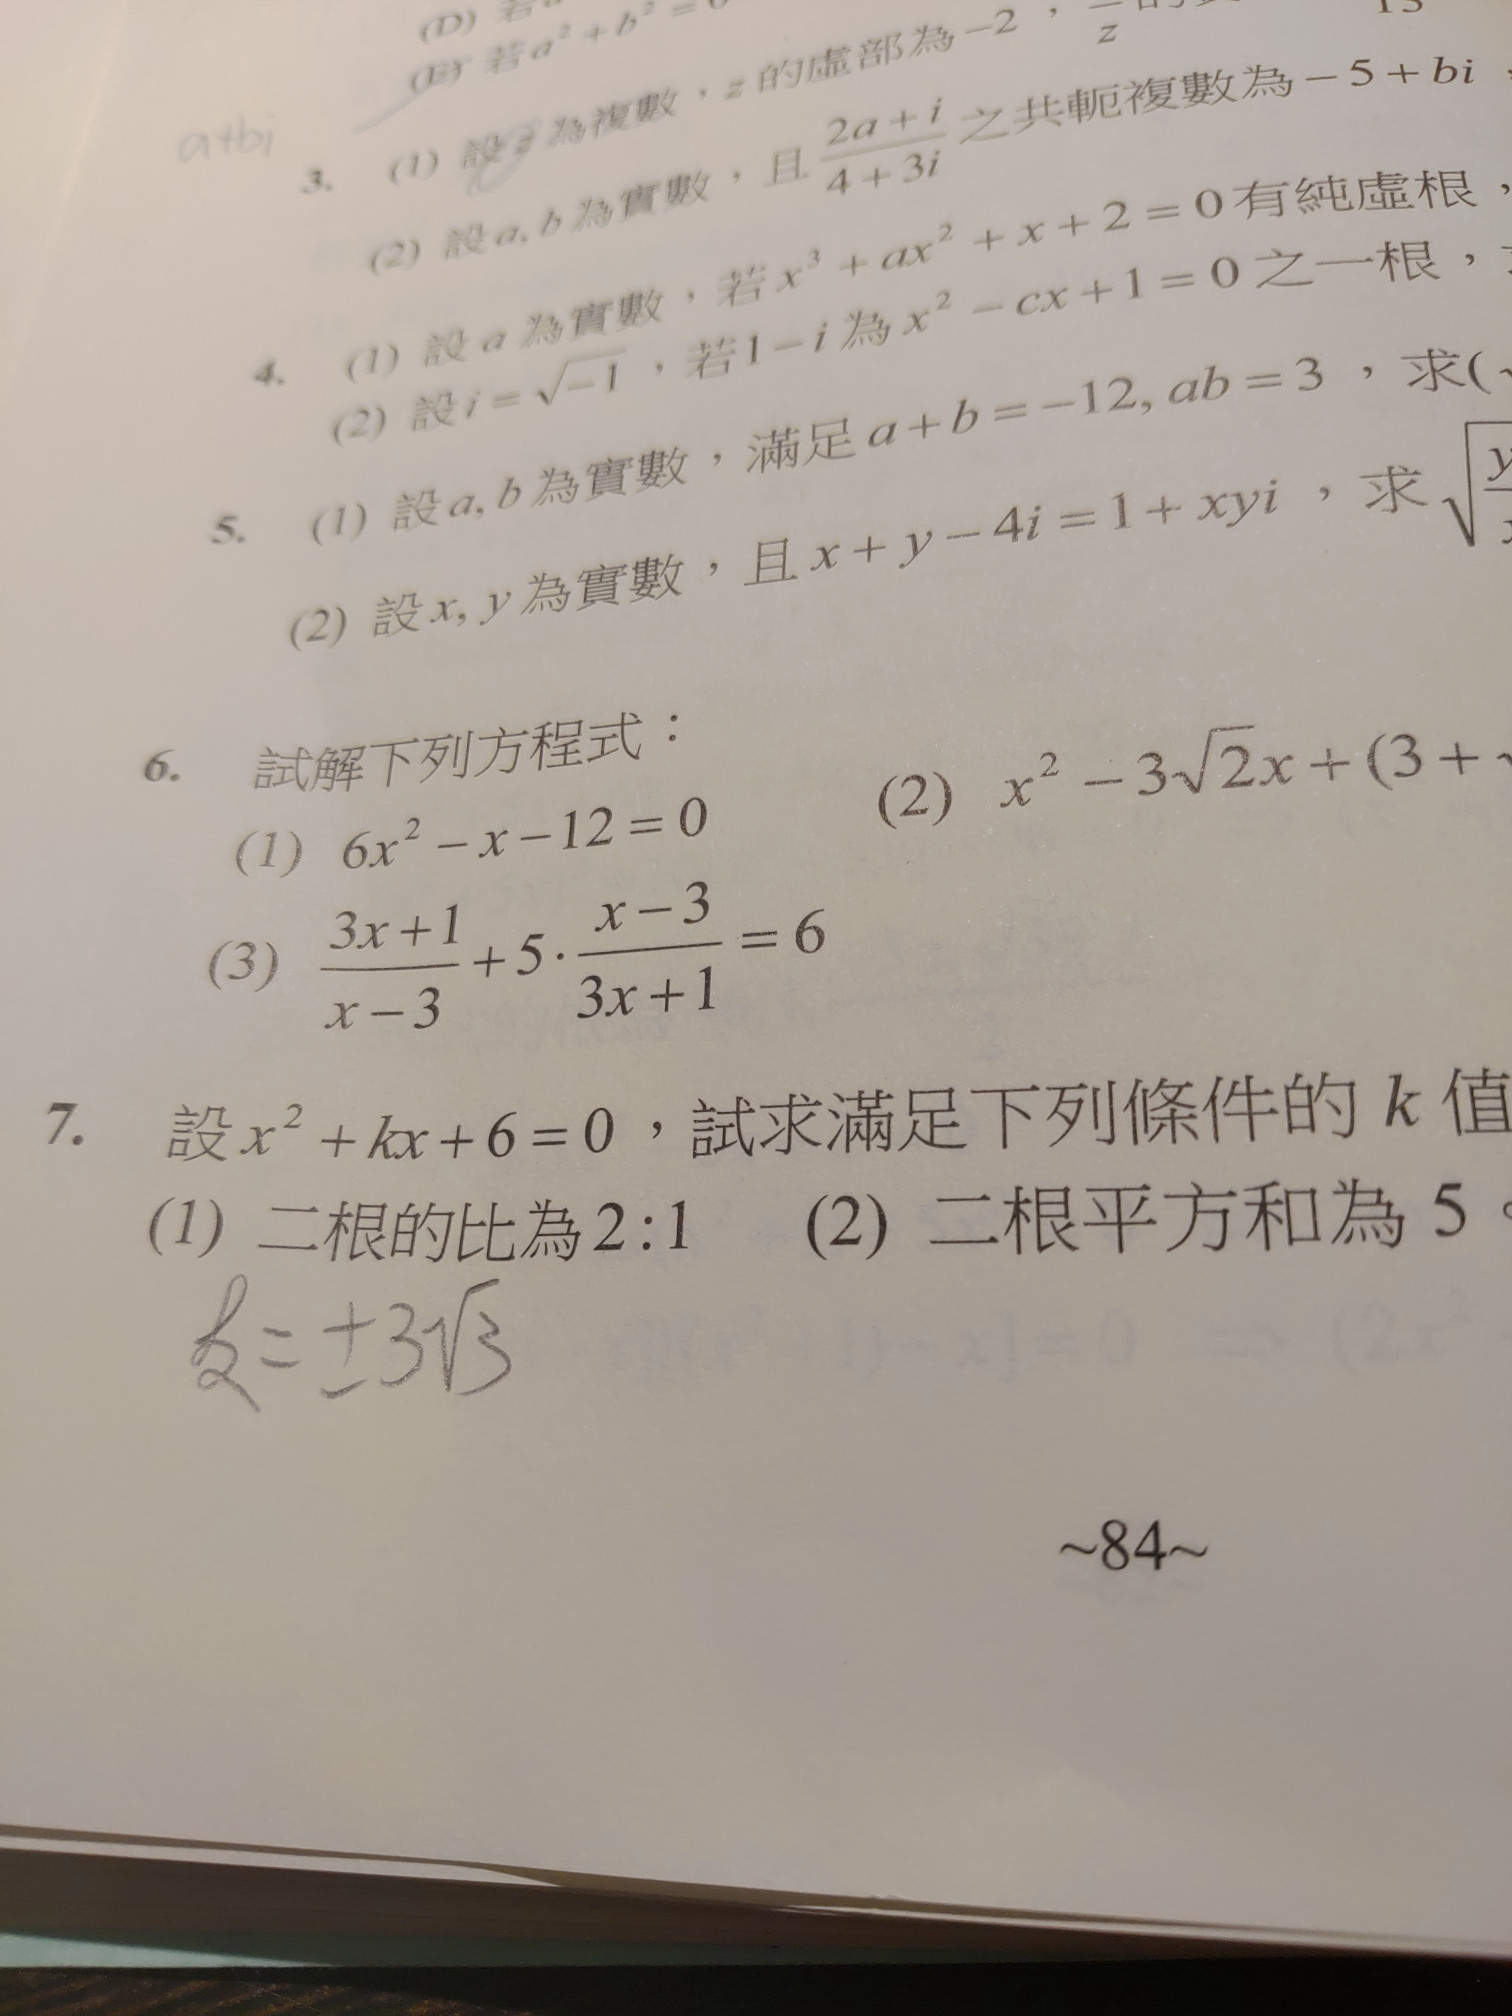 (D) 若a
(E) 若a² + b² = 0
a+bi
3. (1) 設z為複數，z的虛部為−2，
(2) 設a, b為實數，且 (2a+i)/(4+3i) 之共軛複數為−5+bi
4. (1) 設a為實數，若x³ + ax² + x + 2 = 0有純虛根，
(2) 設i = √−1，若1−i為x² − cx + 1 = 0之一根，
5. (1) 設a, b為實數，滿足a+b = −12, ab = 3，求(
(2) 設x, y為實數，且x + y − 4i = 1 + xyi，求
6. 試解下列方程式：
(1) 6x² − x − 12 = 0 (2) x² − 3√2x + (3 +
(3) (3x+1)/(x−3) + 5·(x−3)/(3x+1) = 6
7. 設x² + kx + 6 = 0，試求滿足下列條件的 k 值
(1) 二根的比為2:1 (2) 二根平方和為 5。
k=±3√3
~84~